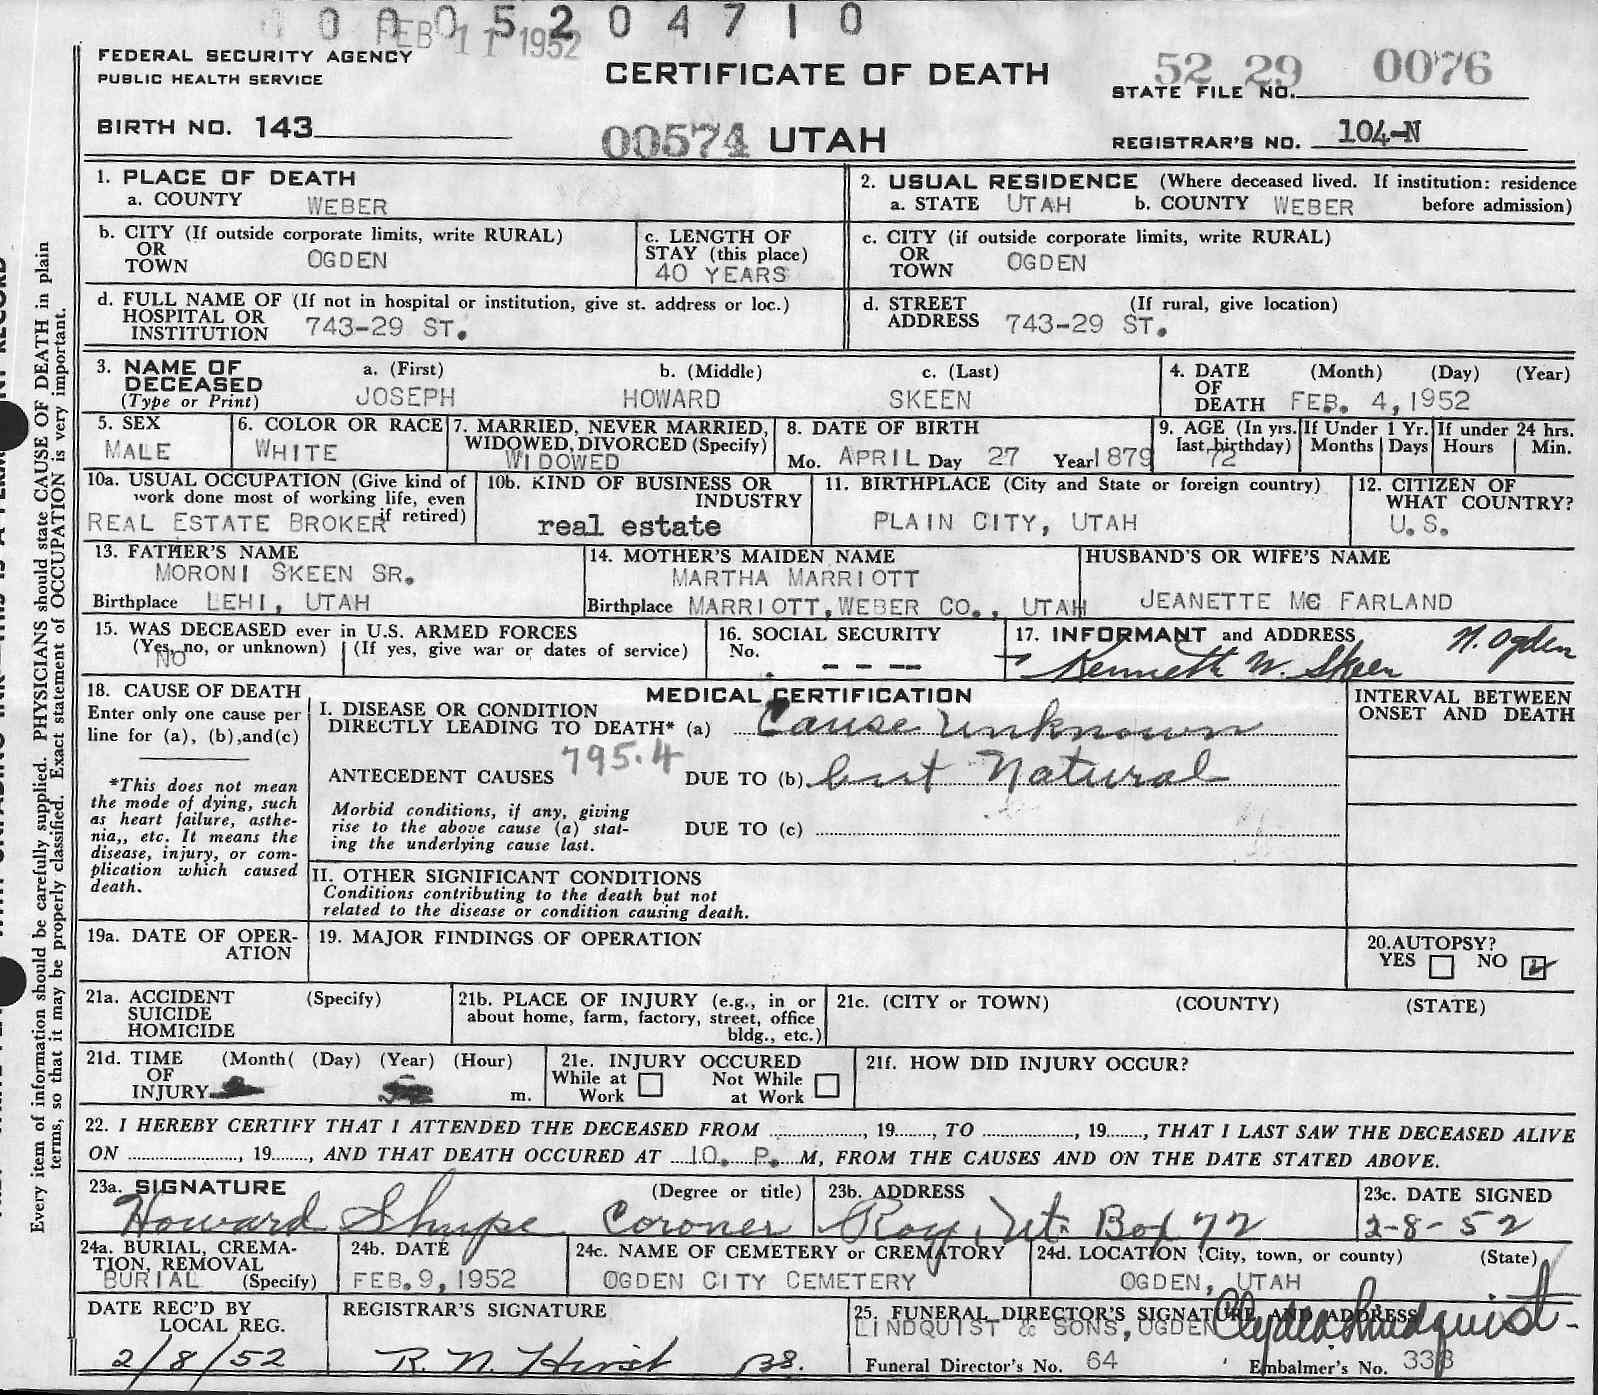 0 0 0 5 2 0 4 7 1 0
FEB 11 1952
FEDERAL SECURITY AGENCY
PUBLIC HEALTH SERVICE
CERTIFICATE OF DEATH
52 29 0076
STATE FILE NO.
BIRTH NO. 143
00574 UTAH
REGISTRAR'S NO. 104-N
1. PLACE OF DEATH
a. COUNTY WEBER
2. USUAL RESIDENCE (Where deceased lived. If institution: residence
a. STATE UTAH b. COUNTY WEBER before admission)
b. CITY (If outside corporate limits, write RURAL)
OR
TOWN OGDEN
c. LENGTH OF
STAY (this place)
40 YEARS
c. CITY (if outside corporate limits, write RURAL)
OR
TOWN OGDEN
d. FULL NAME OF (If not in hospital or institution, give st. address or loc.)
HOSPITAL OR
INSTITUTION 743-29 ST.
d. STREET (If rural, give location)
ADDRESS 743-29 ST.
3. NAME OF
DECEASED
(Type or Print)
a. (First) b. (Middle) c. (Last)
JOSEPH HOWARD SKEEN
4. DATE (Month) (Day) (Year)
OF
DEATH FEB. 4, 1952
5. SEX
MALE
6. COLOR OR RACE
WHITE
7. MARRIED, NEVER MARRIED,
WIDOWED, DIVORCED (Specify)
WIDOWED
8. DATE OF BIRTH
Mo. APRIL Day 27 Year 1879
9. AGE (In yrs.
last birthday)
72
If Under 1 Yr.
Months Days
If under 24 hrs.
Hours Min.
10a. USUAL OCCUPATION (Give kind of
work done most of working life, even
REAL ESTATE BROKER if retired)
10b. KIND OF BUSINESS OR
INDUSTRY
real estate
11. BIRTHPLACE (City and State or foreign country)
PLAIN CITY, UTAH
12. CITIZEN OF
WHAT COUNTRY?
U.S.
13. FATHER'S NAME
MORONI SKEEN SR.
Birthplace LEHI, UTAH
14. MOTHER'S MAIDEN NAME
MARTHA MARRIOTT
Birthplace MARRIOTT, WEBER CO., UTAH
HUSBAND'S OR WIFE'S NAME
JEANETTE MC FARLAND
15. WAS DECEASED ever in U.S. ARMED FORCES
(Yes, no, or unknown) (If yes, give war or dates of service)
NO
16. SOCIAL SECURITY
No.
- - - --
17. INFORMANT and ADDRESS
Kenneth W. Skeen N. Ogden
18. CAUSE OF DEATH
Enter only one cause per
line for (a), (b),and(c)
*This does not mean
the mode of dying, such
as heart failure, asthe-
nia,, etc. It means the
disease, injury, or com-
plication which caused
death.
MEDICAL CERTIFICATION
I. DISEASE OR CONDITION
DIRECTLY LEADING TO DEATH* (a) Cause unknown
795.4
ANTECEDENT CAUSES DUE TO (b) but Natural
Morbid conditions, if any, giving
rise to the above cause (a) stat-
ing the underlying cause last.
DUE TO (c)
II. OTHER SIGNIFICANT CONDITIONS
Conditions contributing to the death but not
related to the disease or condition causing death.
INTERVAL BETWEEN
ONSET AND DEATH
19a. DATE OF OPER-
ATION
19. MAJOR FINDINGS OF OPERATION
20.AUTOPSY?
YES NO
21a. ACCIDENT (Specify)
SUICIDE
HOMICIDE
21b. PLACE OF INJURY (e.g., in or
about home, farm, factory, street, office
bldg., etc.)
21c. (CITY or TOWN) (COUNTY) (STATE)
21d. TIME (Month( (Day) (Year) (Hour)
OF
INJURY m.
21e. INJURY OCCURED
While at Work Not While at Work
21f. HOW DID INJURY OCCUR?
22. I HEREBY CERTIFY THAT I ATTENDED THE DECEASED FROM , 19 , TO , 19 , THAT I LAST SAW THE DECEASED ALIVE
ON , 19 , AND THAT DEATH OCCURED AT 10. P. M, FROM THE CAUSES AND ON THE DATE STATED ABOVE.
23a. SIGNATURE (Degree or title)
Howard Shupe Coroner
23b. ADDRESS
Roy, Ut. Box 72
23c. DATE SIGNED
2-8-52
24a. BURIAL, CREMA-
TION, REMOVAL
BURIAL (Specify)
24b. DATE
FEB.9, 1952
24c. NAME OF CEMETERY or CREMATORY
OGDEN CITY CEMETERY
24d. LOCATION (City, town, or county) (State)
OGDEN, UTAH
DATE REC'D BY
LOCAL REG.
2/8/52
REGISTRAR'S SIGNATURE
R. N. Hirst BS.
25. FUNERAL DIRECTOR'S SIGNATURE AND ADDRESS
LINDQUIST & SONS, OGDEN Lindquist
Funeral Director's No. 64 Embalmer's No. 333
Every item of information should be carefully supplied. PHYSICIANS should state CAUSE OF DEATH in plain
terms, so that it may be properly classified. Exact statement of OCCUPATION is very important.